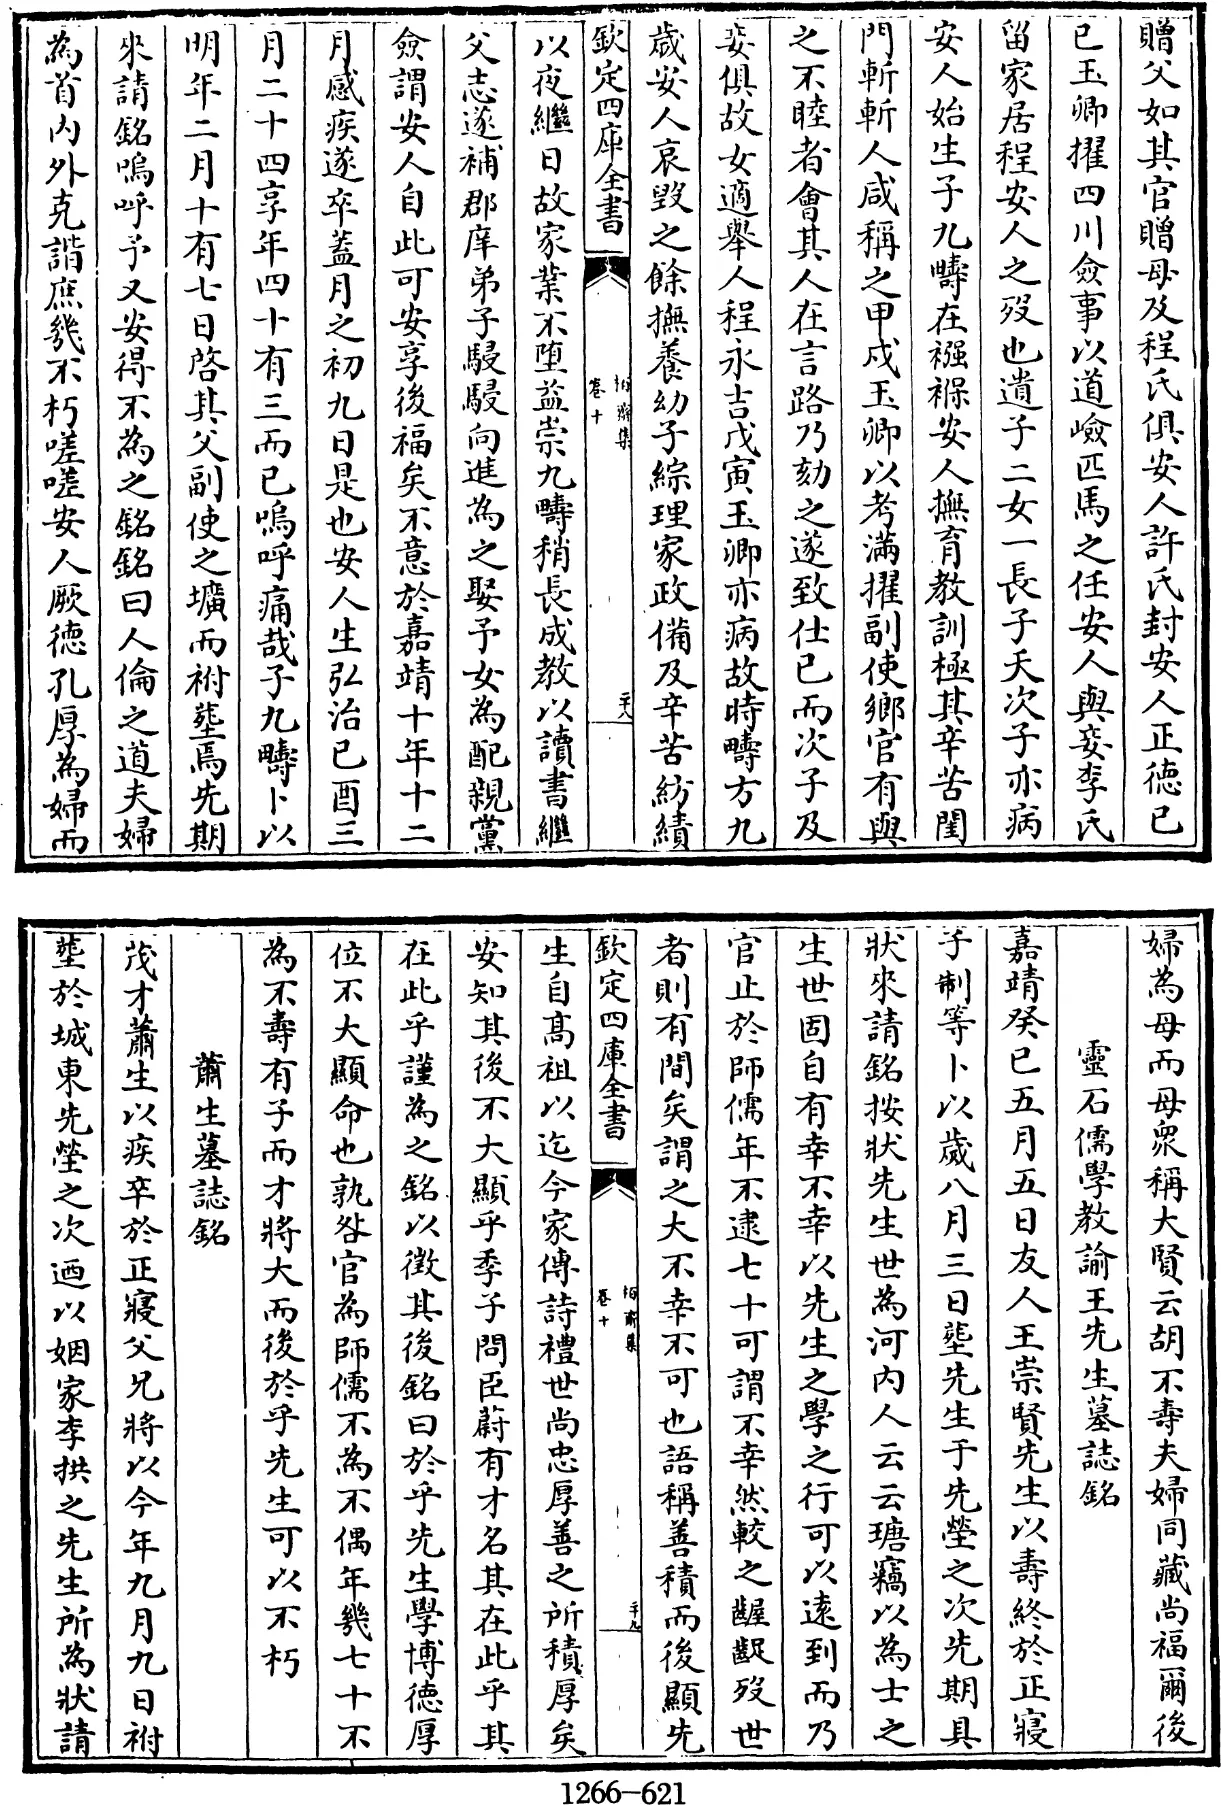 贈父如其官贈母及程氏俱安人許氏封安人正德己
巳玉卿擢四川僉事以道嶮匹馬之任安人與妾李氏
留家居程安人之歿也遺子二女一長子夭次子亦病
安人始生子九疇在襁褓安人撫育教訓極其辛苦閨
門斬斬人咸稱之甲戌玉卿以考滿擢副使鄉官有與
之不睦者會其人在言路乃劾之遂致仕已而次子及
妾俱故女適舉人程永吉戊寅玉卿亦病故時疇方九
歲安人哀毀之餘撫養幼子綜理家政備及辛苦紡績
欽定四庫全書
栢齋集
卷十
二十八
以夜繼日故家業不墮益崇九疇稍長成教以讀書繼
父志遂補郡庠弟子駸駸向進為之娶予女為配親黨
僉謂安人自此可安享後福矣不意於嘉靖十年十二
月感疾遂卒蓋月之初九日是也安人生弘治己酉三
月二十四享年四十有三而已嗚呼痛哉子九疇卜以
明年二月十有七日啓其父副使之壙而祔塟焉先期
來請銘嗚呼予又安得不為之銘銘曰人倫之道夫婦
為首內外克諧庶幾不朽嗟嗟安人厥德孔厚為婦而
婦為母而母衆稱大賢云胡不壽夫婦同藏尚福爾後
靈石儒學教諭王先生墓誌銘
嘉靖癸巳五月五日友人王崇賢先生以壽終於正寢
子制等卜以歲八月三日塟先生于先塋之次先期具
狀來請銘按狀先生世為河內人云云瑭竊以為士之
生世固自有幸不幸以先生之學之行可以遠到而乃
官止於師儒年不逮七十可謂不幸然較之齷齪歿世
者則有間矣謂之大不幸不可也語稱善積而後顯先
欽定四庫全書
栢齋集
卷十
二十九
生自髙祖以迄今家傳詩禮世尚忠厚善之所積厚矣
安知其後不大顯乎季子問臣蔚有才名其在此乎其
在此乎謹為之銘以徵其後銘曰於乎先生學博德厚
位不大顯命也孰咎官為師儒不為不偶年幾七十不
為不壽有子而才將大而後於乎先生可以不朽
蕭生墓誌銘
茂才蕭生以疾卒於正寢父兄將以今年九月九日祔
塟於城東先塋之次迺以姻家李拱之先生所為狀請
1266-621